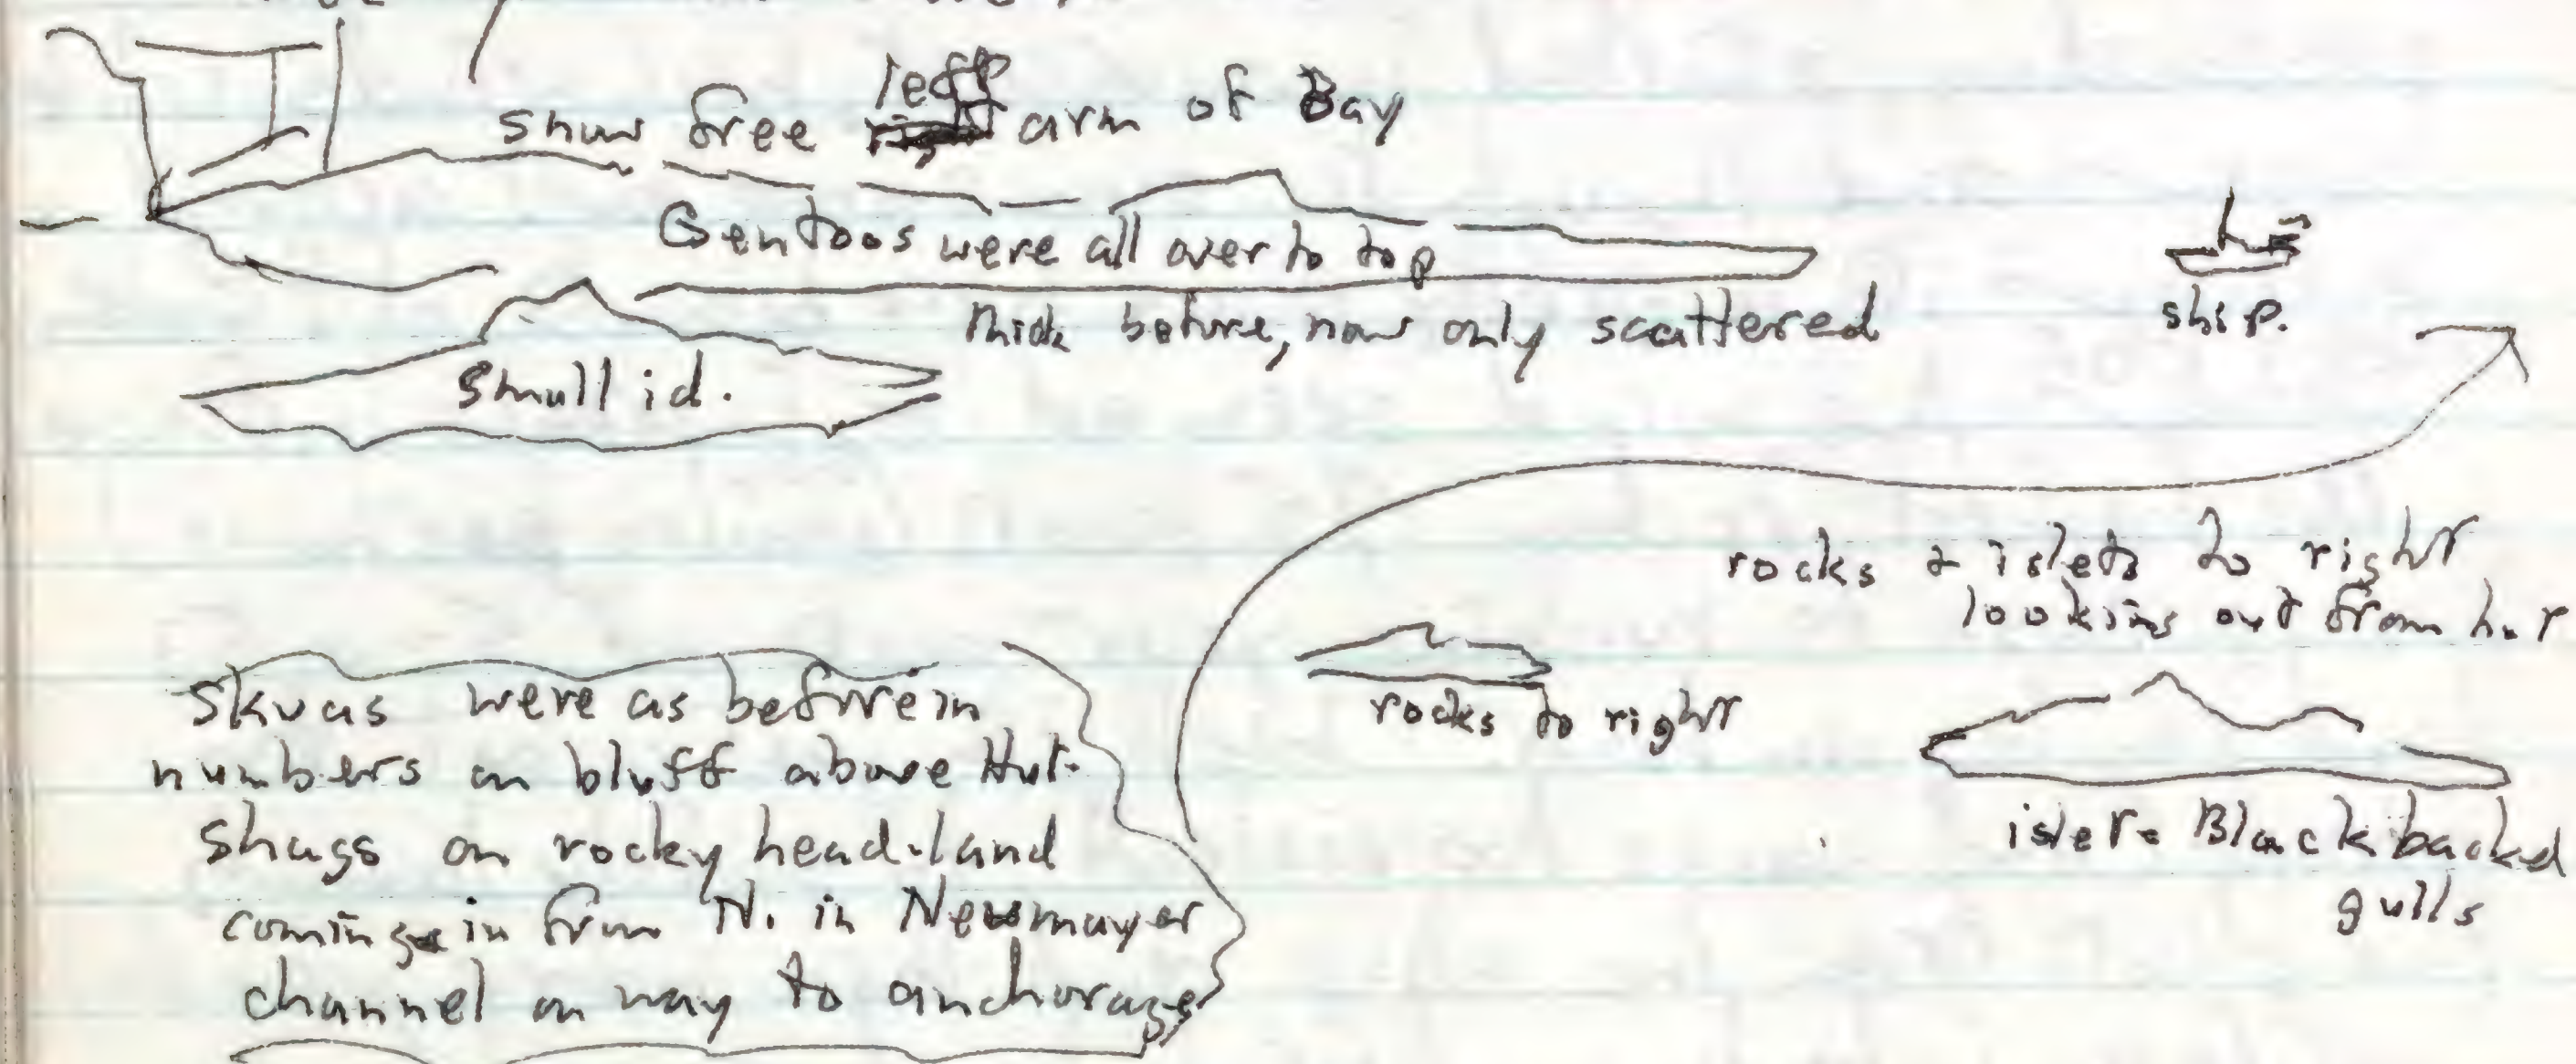 snow free left arm of Bay
Gentoos were all over to top
thick before, now only scattered
ship.
Small id.
rocks & islets to right
looking out from hut
rocks to right
islet. Black backed
gulls
Skuas were as before in
numbers on bluff above Hut.
Shags on rocky head-land
coming in from N. in Neumayer
channel on way to anchorage